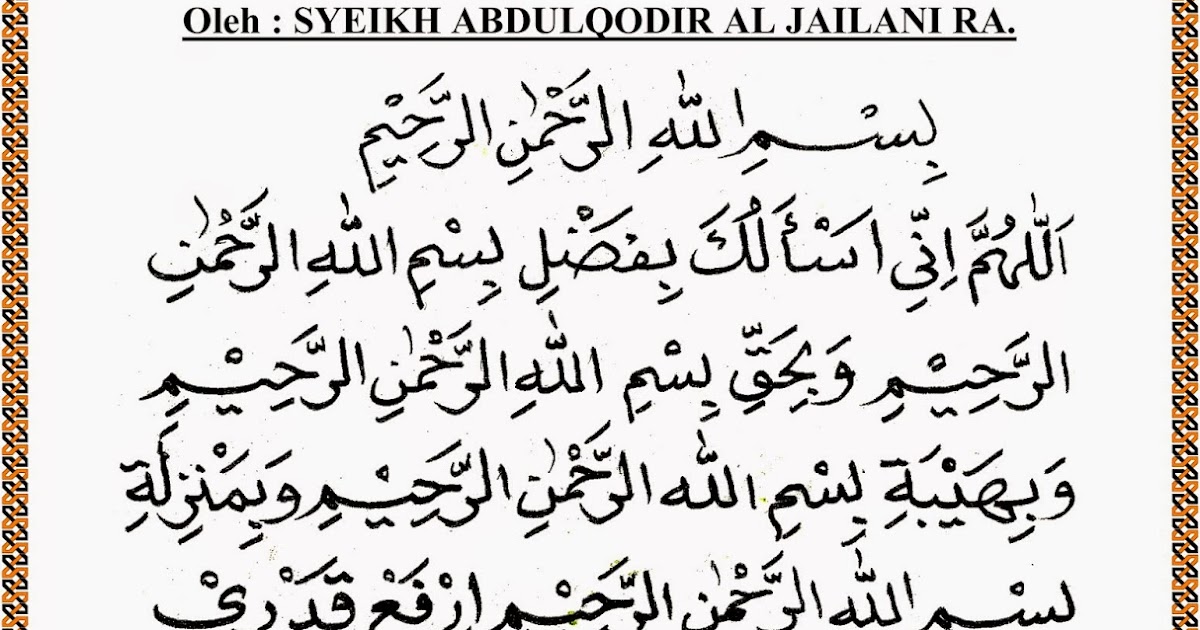 Oleh : SYEIKH ABDULQODIR AL JAILANI RA.
بِسْمِ اللّٰهِ الرَّحْمٰنِ الرَّحِيْمِ
اَللّٰهُمَّ اِنِّي اَسْأَلُكَ بِفَضْلِ بِسْمِ اللّٰهِ الرَّحْمٰنِ
الرَّحِيْمِ وَبِحَقِّ بِسْمِ اللّٰهِ الرَّحْمٰنِ الرَّحِيْمِ
وَبِهَيْبَةِ بِسْمِ اللّٰه الرَّحْمٰنِ الرَّحِيْمِ وَبِمَنْزِلَةِ
بِسْمِ اللّٰهِ الرَّحْمٰنِ الرَّحِيْمِ اِرْفَعْ قَدْرِيْ